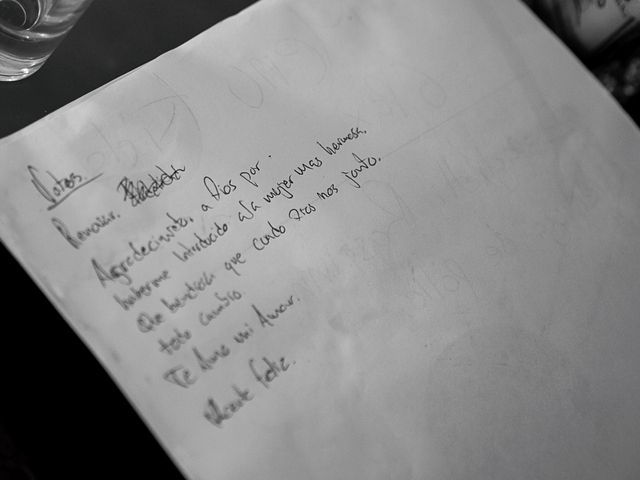 Votos.
Renovar.
Agradecimiento, a Dios por.
haberme Introducido a la mujer mas hermosa.
Que bendición que cuando Dios nos junto.
todo cambio.
Te Amo mi Amor.
feliz.